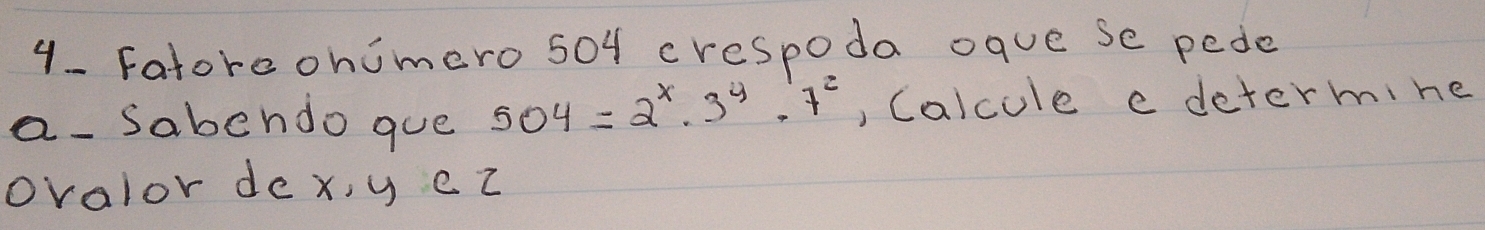 4- Fatore o número 504 e respoda o que se pede
a- Sabendo que 504 = 2ˣ . 3ʸ . 7ᶻ, Calcule e determine
o valor de x, y e z